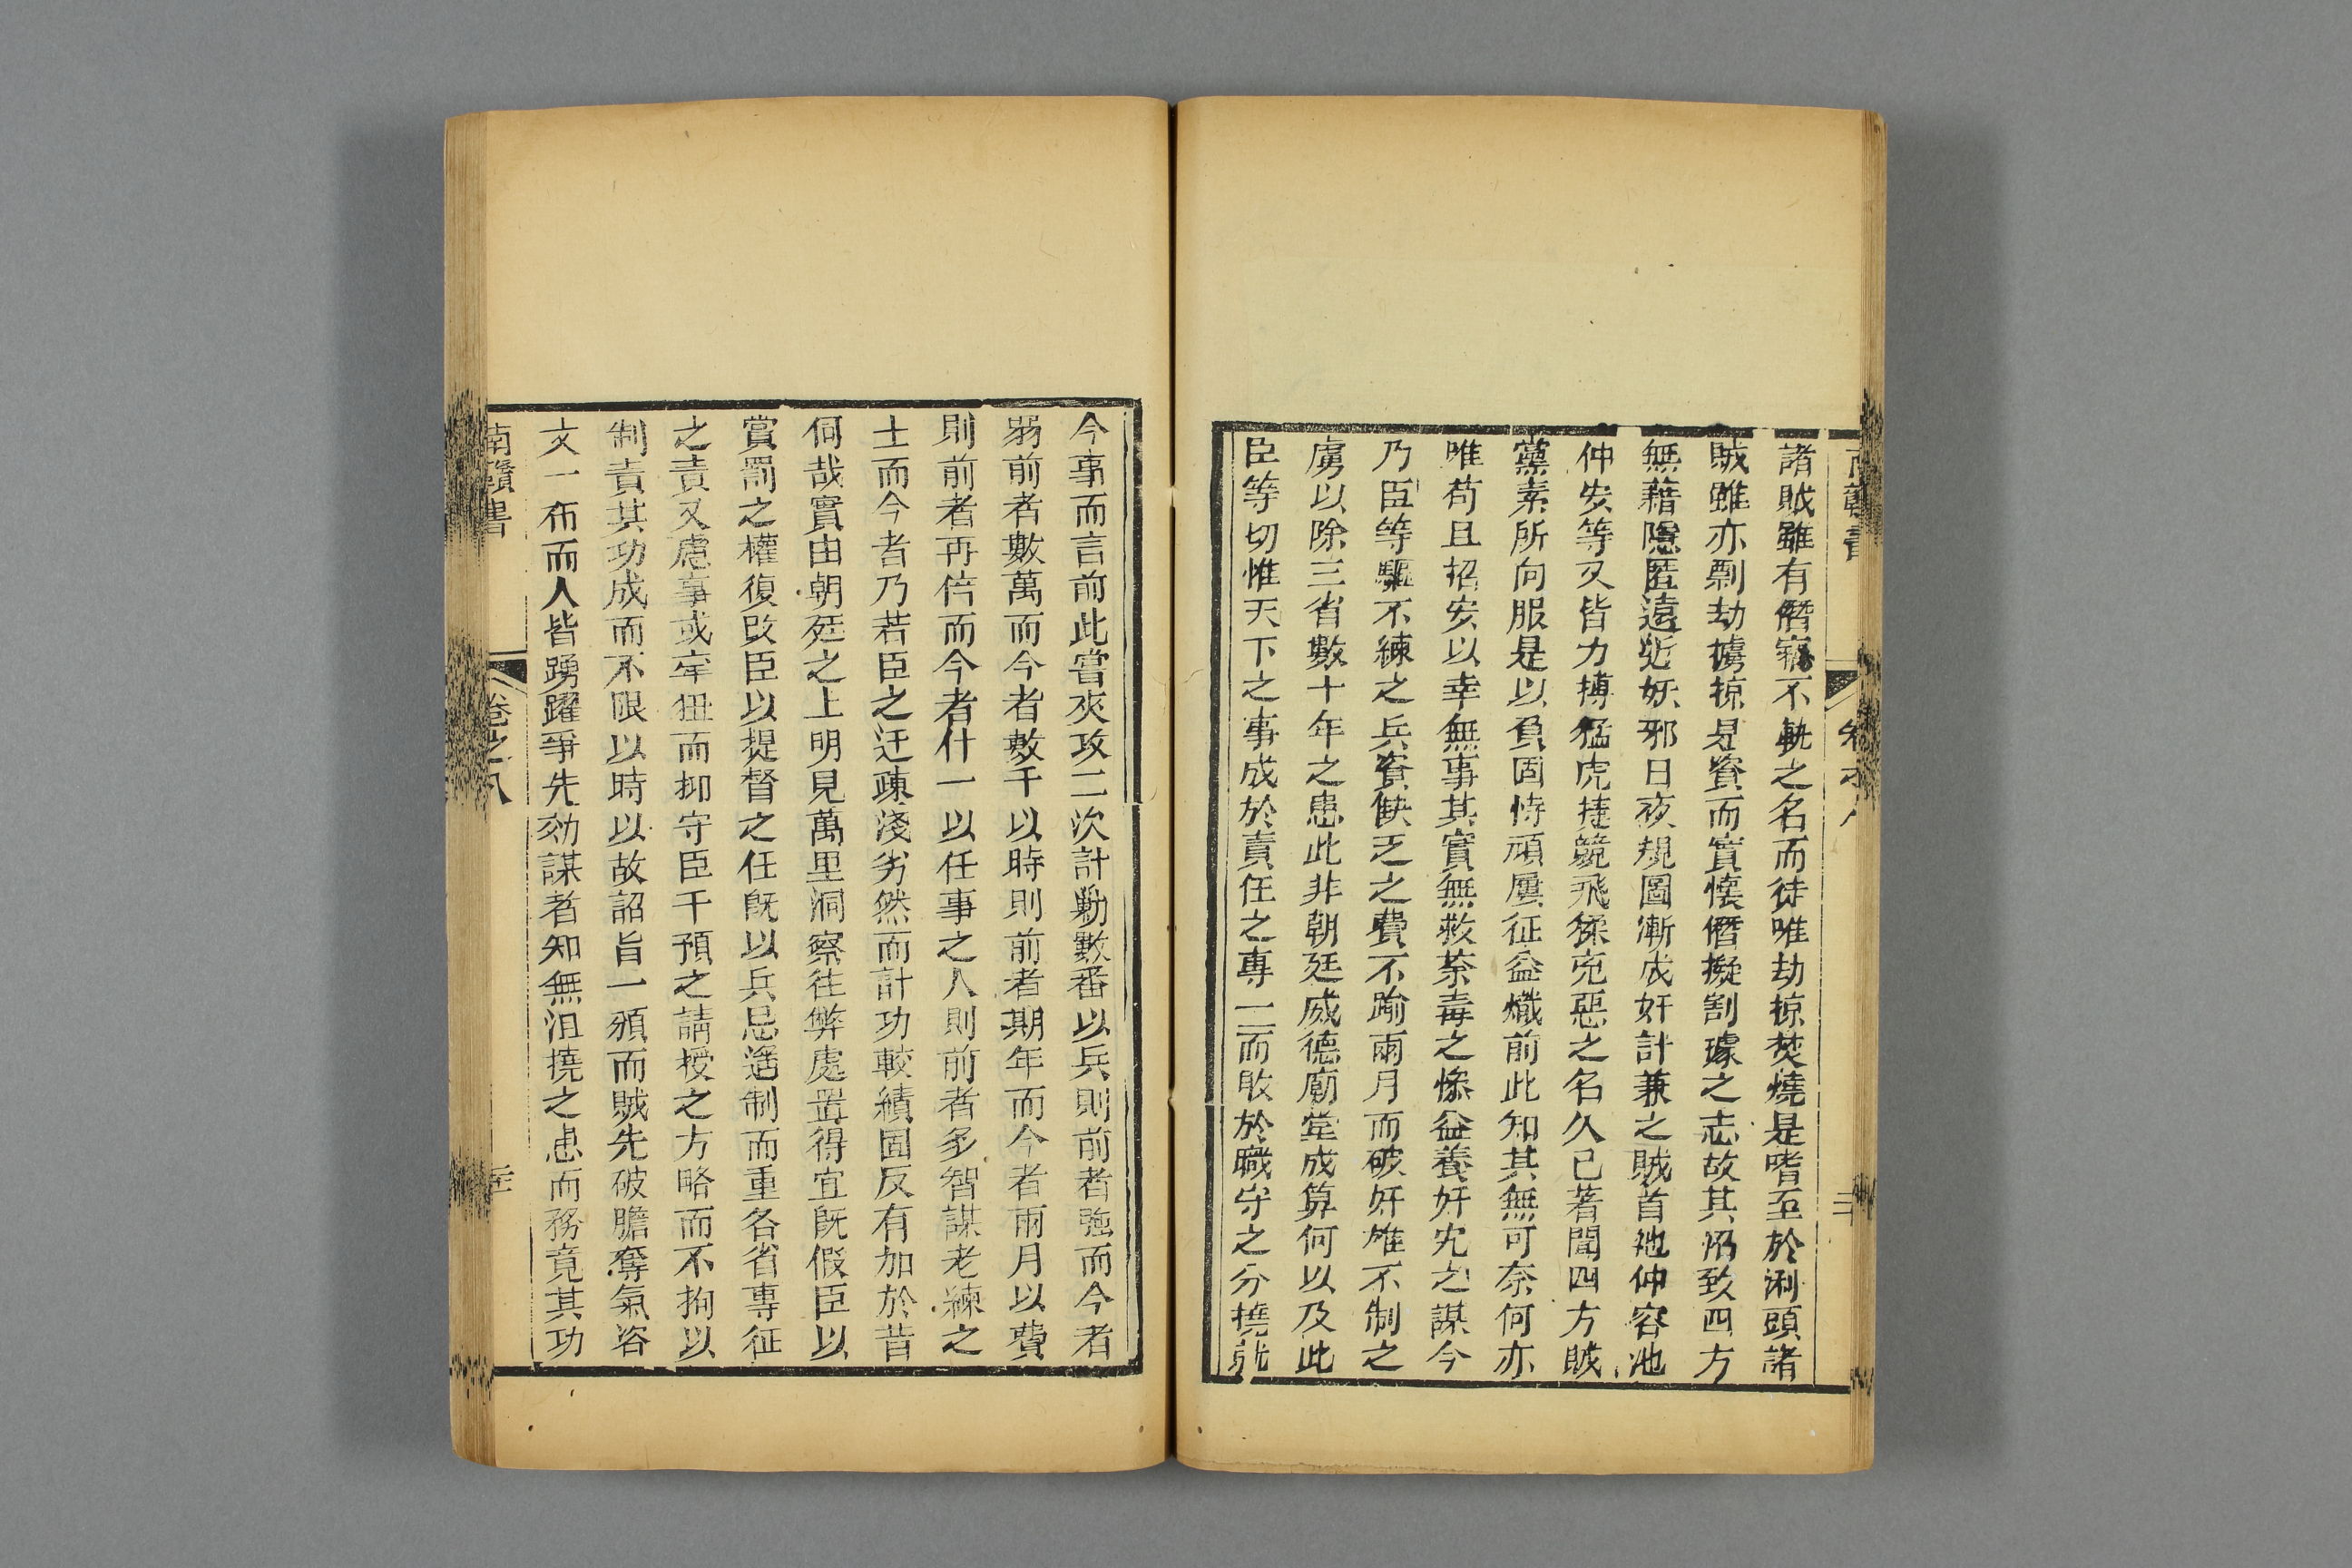 諸賊雖有僭竊不軌之名而徒唯劫掠焚燒是嗜至於浰頭諸
賊雖亦剽劫擄掠是資而實懷僭擬割據之志故其招致四方
無藉隱匿遠近妖邪日夜規圖漸成奸計兼之賊首池仲容池
仲安等又皆力搏猛虎捷競飛猱兇惡之名久已著聞四方賊
黨素所向服是以負固恃頑屢征益熾前此知其無可奈何亦
唯苟且招安以幸無事其實無救荼毒之慘益養奸宄之謀今
乃臣等驅不練之兵資缺乏之費不踰兩月而破奸雄不制之
虜以除三省數十年之患此非朝廷威德廟堂成算何以及此
臣等切惟天下之事成於責任之專一而敗於職守之分撓就
今事而言前此嘗夾攻二次計勦數番以兵則前者強而今者
弱前者數萬而今者數千以時則前者期年而今者兩月以費
則前者再倍而今者什一以任事之人則前者多智謀老練之
士而今者乃若臣之迂疎淺劣然而計功較績固反有加於昔
何哉實由朝廷之上明見萬里洞察往弊處置得宜既假臣以
賞罰之權復改臣以提督之任既以兵忌遙制而重各省專征
之責又慮事或牽狃而抑守臣干預之請授之方略而不拘以
制責其功成而不限以時以故詔旨一頒而賊先破膽奪氣咨
文一布而人皆踴躍爭先効謀者知無沮撓之患而務竟其功
南贛書 卷之八